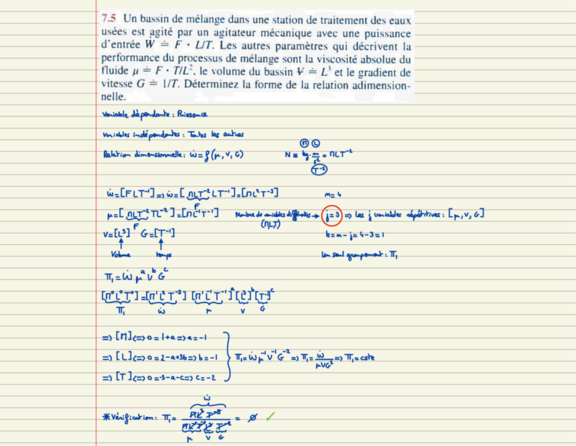 7.5 Un bassin de mélange dans une station de traitement des eaux
usées est agité par un agitateur mécanique avec une puissance
d'entrée Ẇ ≐ F · L/T. Les autres paramètres qui décrivent la
performance du processus de mélange sont la viscosité absolue du
fluide μ ≐ F · T/L², le volume du bassin V ≐ L³ et le gradient de
vitesse G ≐ 1/T. Déterminez la forme de la relation adimension-
nelle.
Variable dépendante : Puissance
Variables indépendantes : Toutes les autres
Relation dimensionnelle : ẇ = f(μ, V, G)
N = kg·m/s² = MLT⁻²
M L
T⁻²
ẇ = [FLT⁻¹] => ẇ = [MLT⁻² LT⁻¹] = [ML²T⁻³]
F
m = 4
μ = [MLT⁻² TL⁻²] = [ML⁻¹T⁻¹]
F
Nombre de variables différentes → j = 3 => Les j variables répétitives : [μ, V, G]
(MLT)
V = [L³] G = [T⁻¹]
k = m - j = 4 - 3 = 1
Volume temps
Un seul groupement : π₁
π₁ = ẇ μᵃ Vᵇ Gᶜ
[M⁰L⁰T⁰] = [M¹L²T⁻³] [M¹L⁻¹T⁻¹]ᵃ [L³]ᵇ [T⁻¹]ᶜ
π₁ ẇ μ V G
=> [M] <=> 0 = 1 + a => a = -1
=> [L] <=> 0 = 2 - a + 3b => b = -1
π₁ = ẇ μ⁻¹ V⁻¹ G⁻² => π₁ = ẇ/μVG² => π₁ = cste
=> [T] <=> 0 = -3 - a - c => c = -2
ẇ
* Vérification : π₁ = ML²T⁻³ / ML⁻¹T⁻¹ L³ T⁻² = ∅ ✓
μ V G